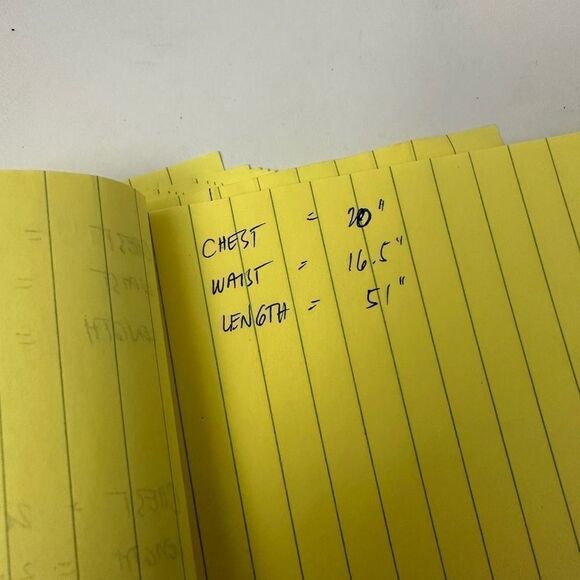 CHEST = 20"
WAIST = 16.5"
LENGTH = 51"